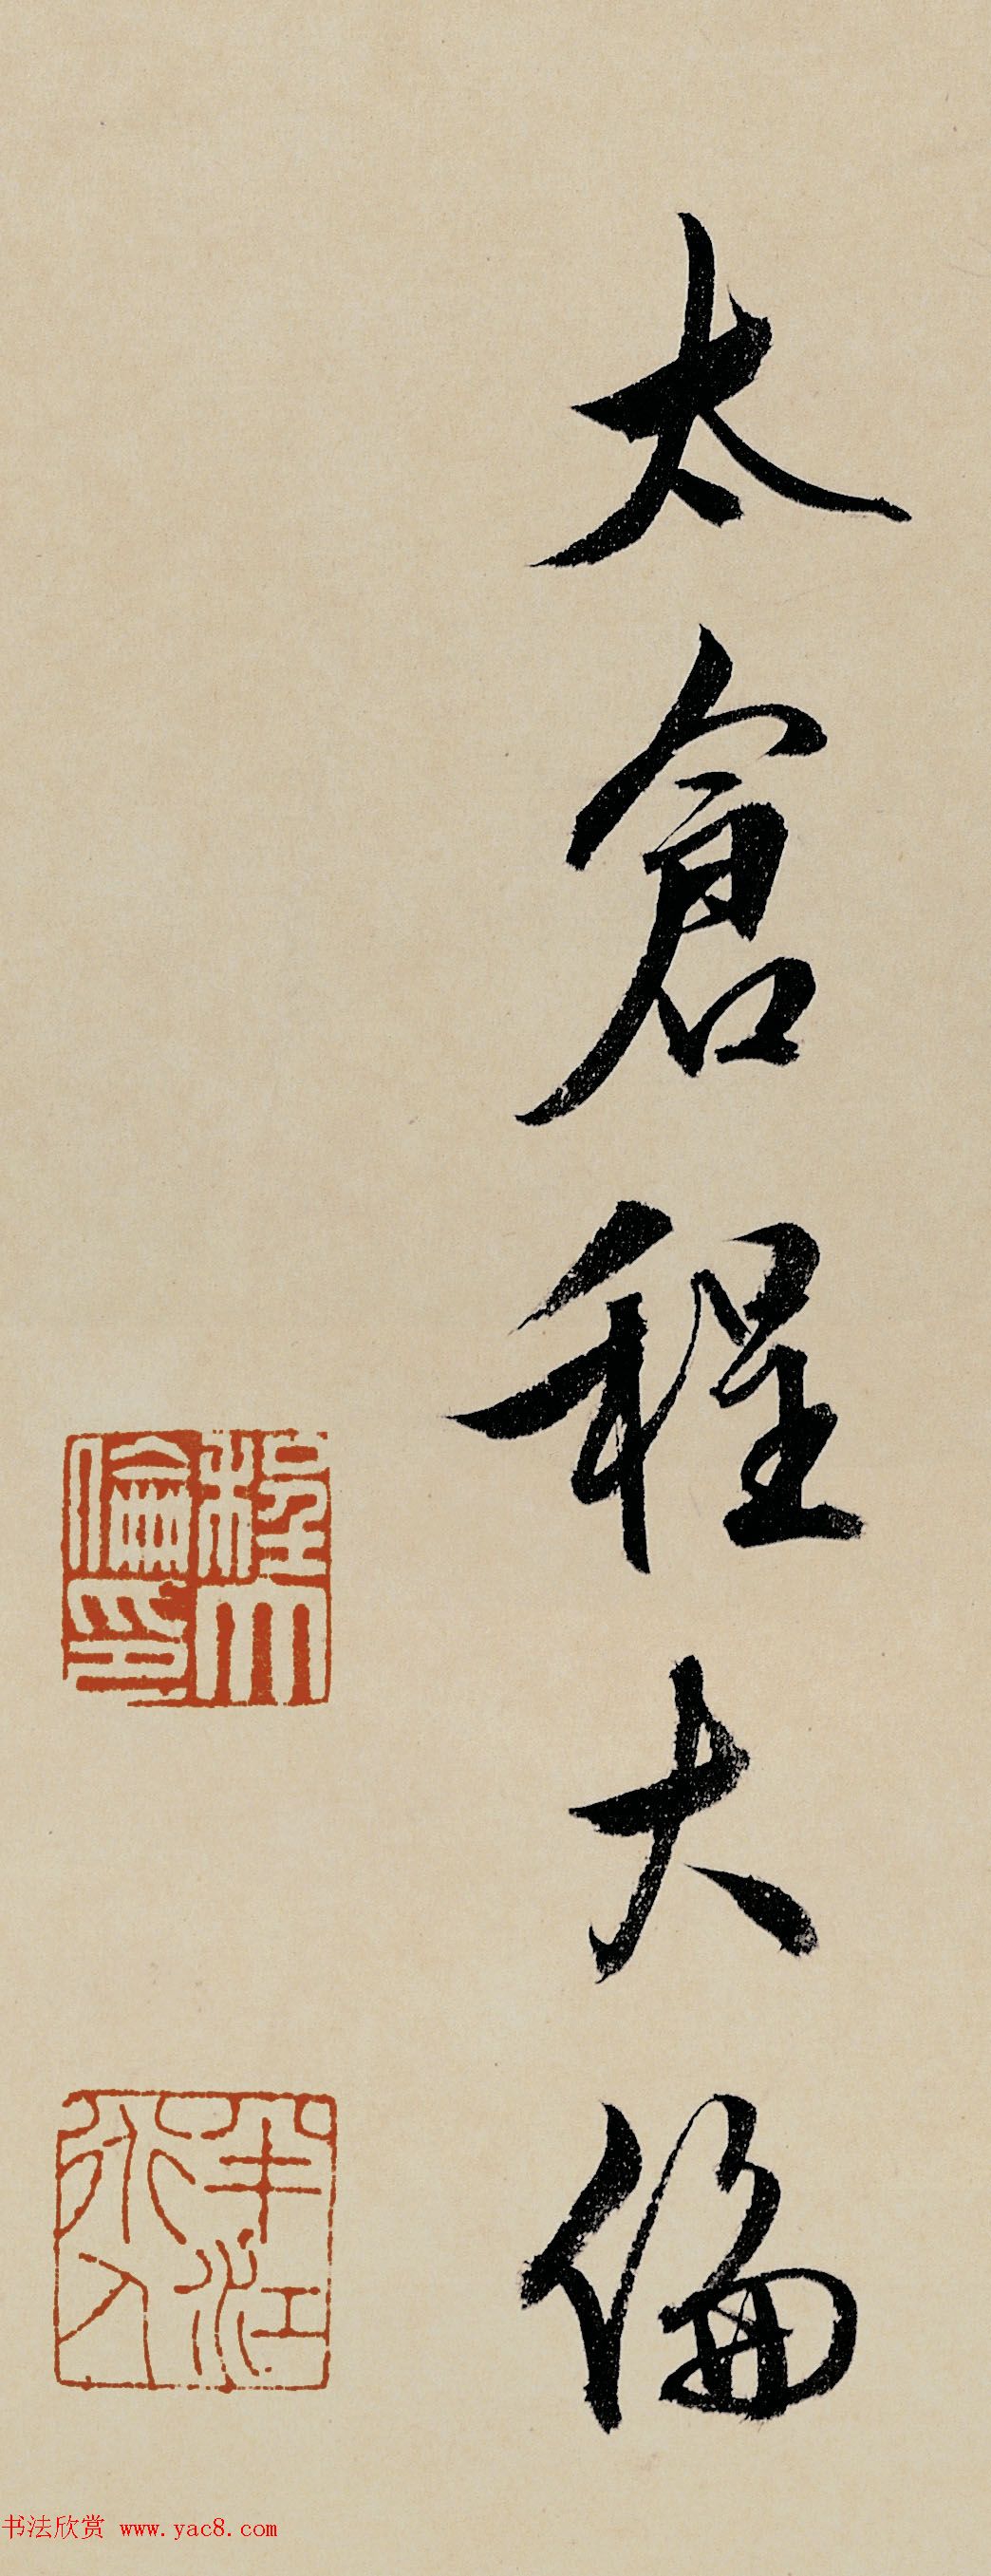 太倉程大倫
程大倫印
半江外人
书法欣赏 www.yac8.com